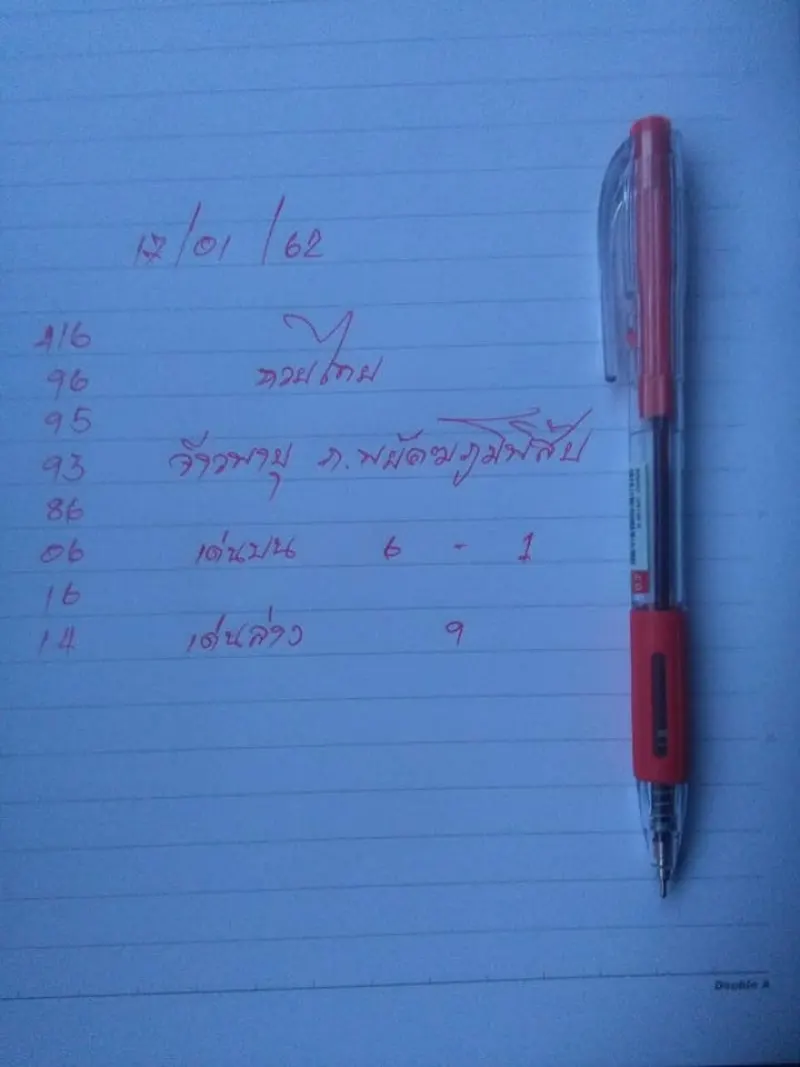 17/01/62
416
หวยไทย
96
95
จ้าวพายุ ภ.พยัคฆภูมิพิสัย
93
86
06 เด่นบน 6 - 1
16
14 เด่นล่าง 9
Double A